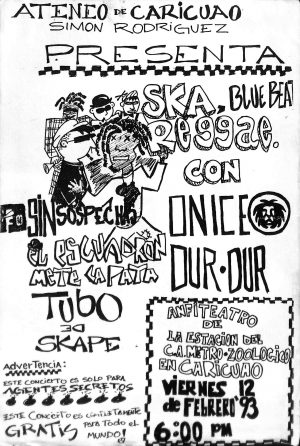 ATENEO DE CARICUAO
SIMON RODRIGUEZ
PRESENTA
SKA, BLUE BEAT
Reggae.
CON
SIN SOSPECHA
ONICE
EL ESCUADRON
METE LA PATA
DUR-DUR
TUBO
DE
SKAPE
ANFITEATRO DE
LA ESTACION DEL
C.A. METRO-ZOOLOGICO
EN CARICUAO
VIERNES 12
DE FEBRERO '93
6:00 PM
Advertencia:
ESTE CONCIERTO ES SOLO PARA
AGENTES SECRETOS
ESTE CONCIERTO ES
GRATIS PARA TODO EL
MUNDO!